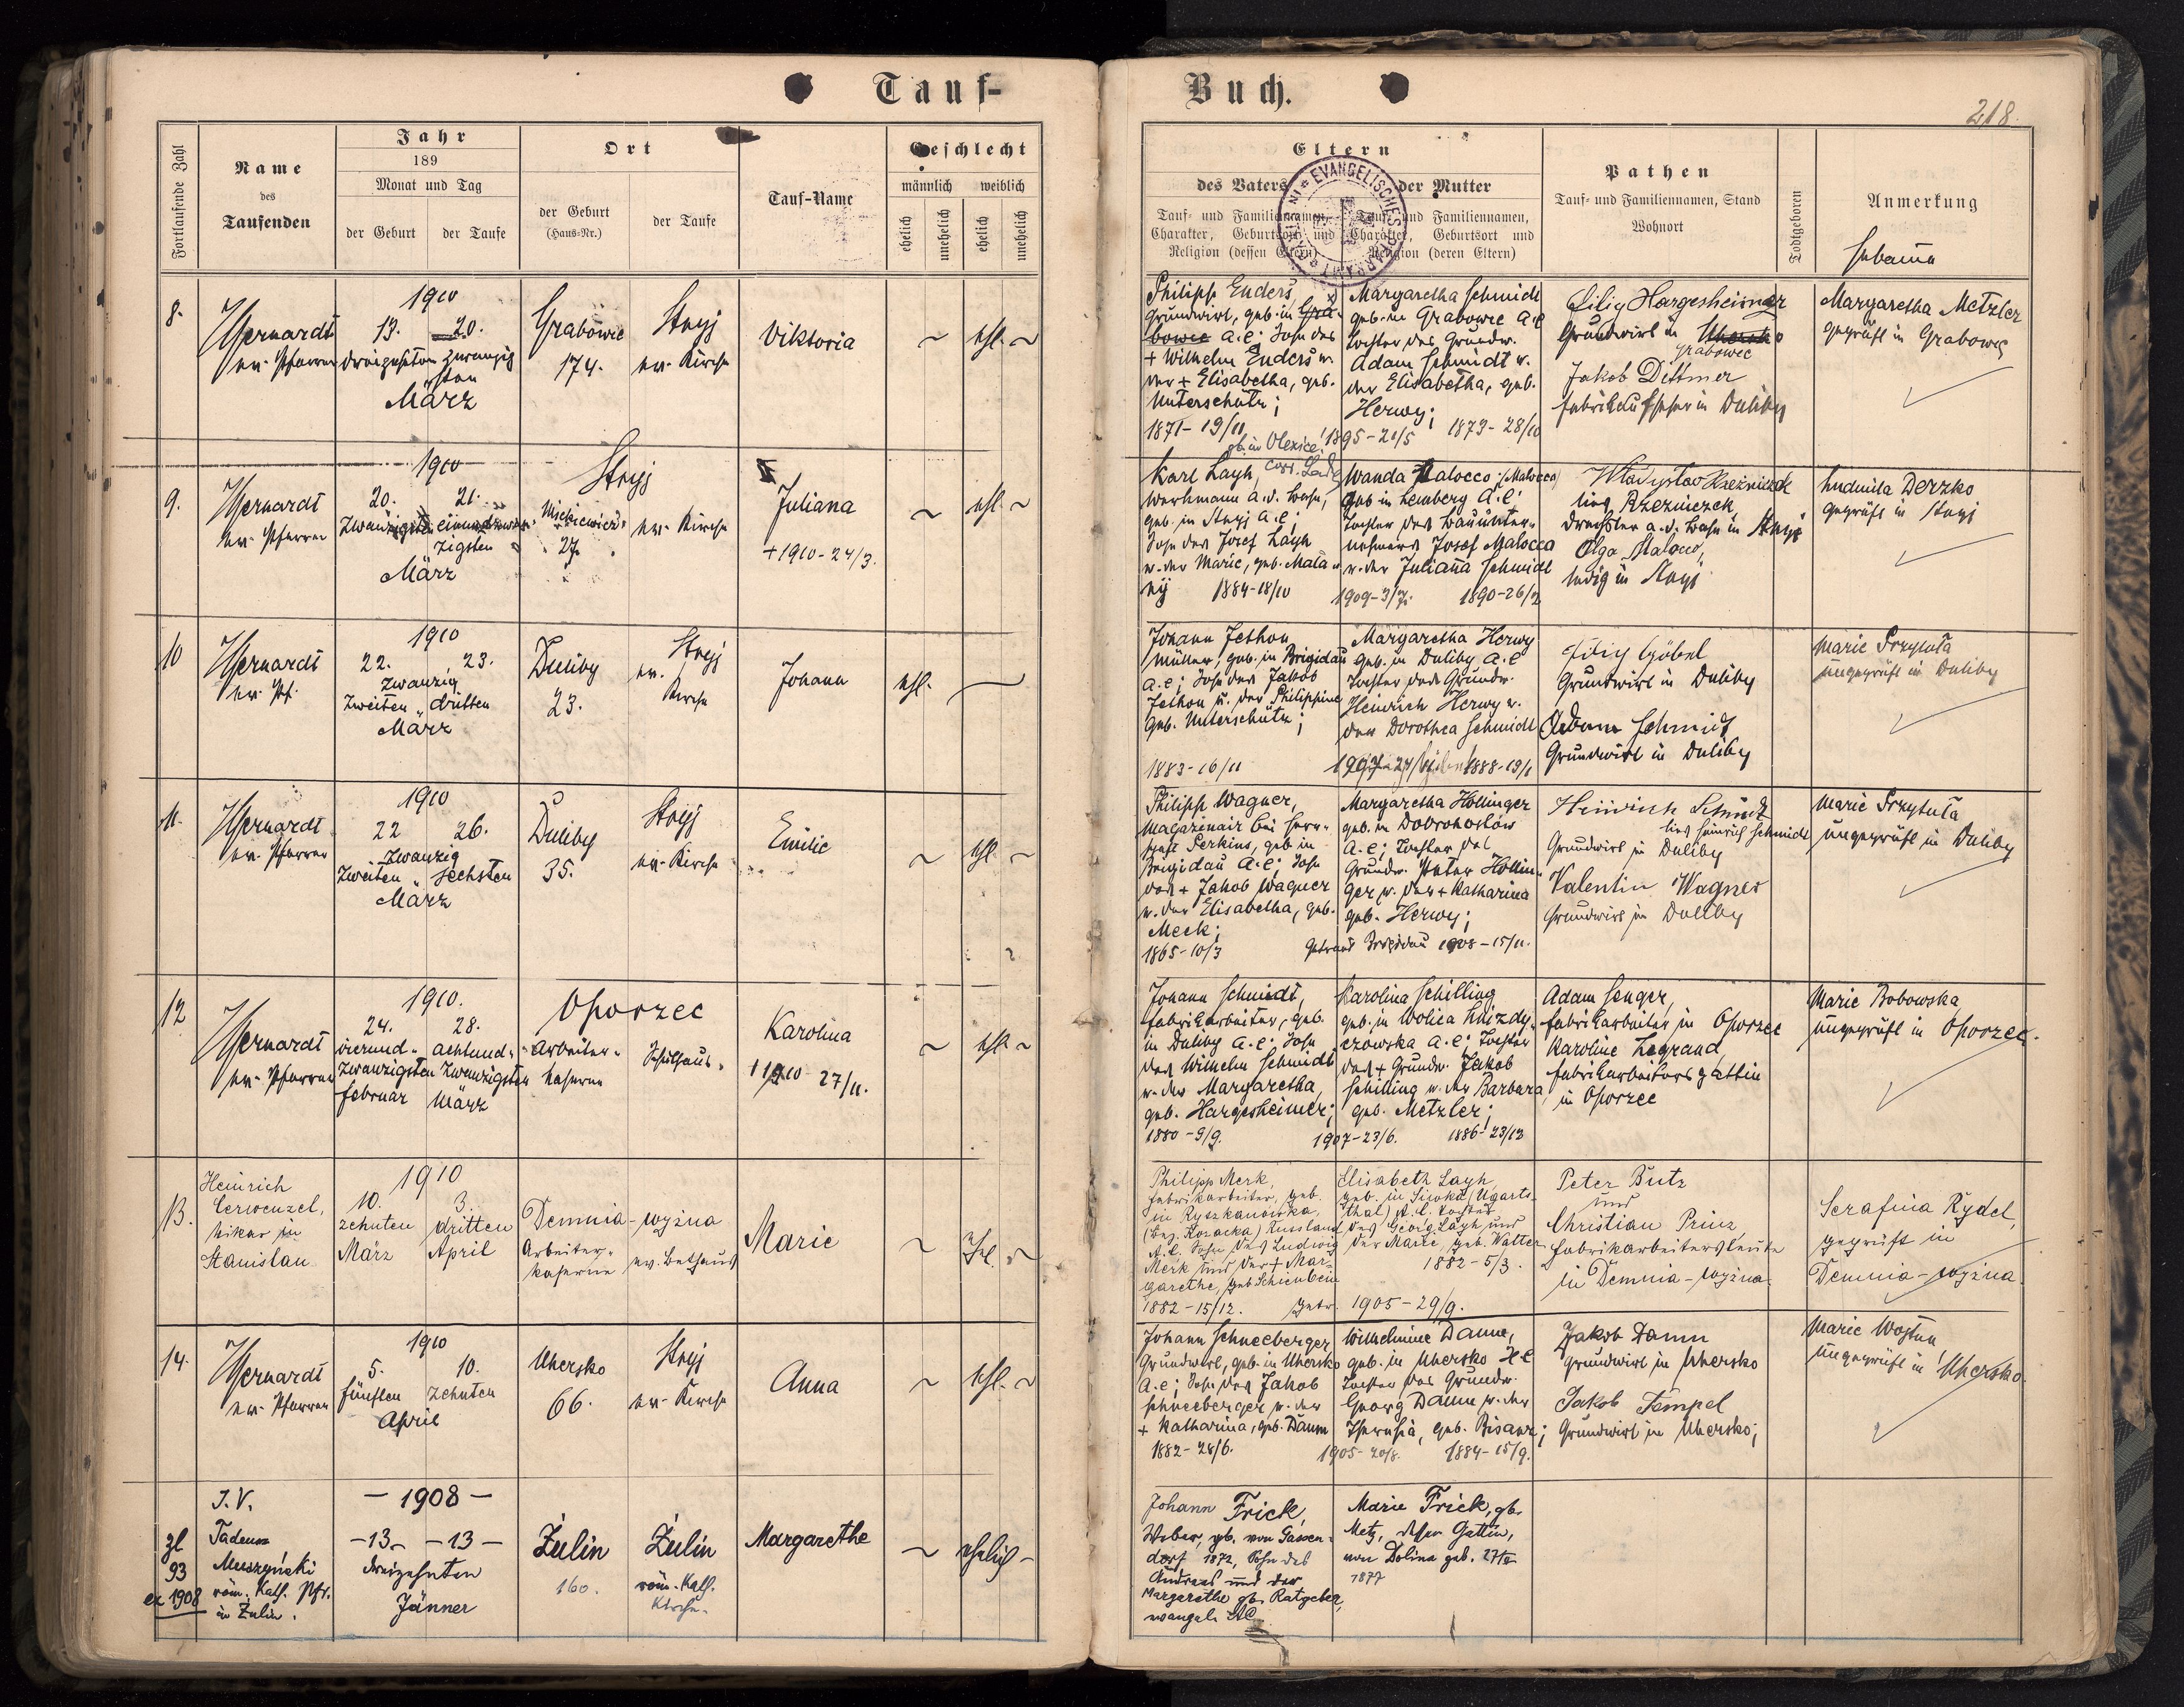 Tauf-
Buch.
218.
Fortlaufende Zahl
Name
des
Taufenden
Jahr
189
Monat und Tag
der Geburt
der Taufe
Ort
der Geburt
(Haus-Nr.)
der Taufe
Tauf-Name
Geschlecht
männlich
weiblich
ehelich
unehelich
ehelich
unehelich
Eltern
des Vaters
der Mutter
Tauf- und Familiennamen,
Charakter, Geburtsort und
Religion (dessen Eltern)
Tauf- und Familiennamen,
Charakter, Geburtsort und
Religion (deren Eltern)
EVANGELISCHES PFARRAMT
Pathen
Tauf- und Familiennamen, Stand
Wohnort
Todtgeboren
Anmerkung
Hebamme
8.
ev. Pfarrer
1910
13.
20.
dreizehnten
zwanzigsten
März
Grabowie
174.
Stryj
ev. Kirche
Viktoria
ehl.
Philipp Enders,
Grundwirt, geb. in Grabowie
A.C; Sohn des
+ Wilhelm Enders u.
der + Elisabetha, geb.
Unterschütz;
1871-19/11
1895-21/5
Margaretha Schmidt
geb. in Grabowie A.C
Tochter des Grundw.
Adam Schmidt u.
der Elisabetha, geb.
Herwy;
1873-28/10
Filip Hargesheimer
Grundwirt in
Grabowiec
Jakob Dittmer
in Duliby
Margaretha Metzler
geprüft in Grabowie
9.
ev. Pfarrer
1910
20.
21.
zwanzigsten einundzwanzigsten
März
Stryj
Mickiewicz
27.
ev. Kirche
Juliana
+1910-24/3.
ehl.
Karl Layh,
Werkmann a. d. Bahn,
geb. in Stryj A.C;
Sohn des Josef Layh
u. der Marie, geb.
1884-18/10
Wanda Malocco (Malocca)
geb in Lemberg A.C
Tochter des Bauunternehmers
Josef Malocca
u. der Juliana Schmidt
1890-26/2
Rzezniczek
Drechsler a. d. Bahn in Stryj
Olga
ledig in Stryj
Ludmila Derzko
geprüft in Stryj
10
ev. Pf.
1910
22.
23.
zwanzig
zweiten " dritten
März
Duliby
23.
Stryj
ev. Kirche
Johann
ehl.
Johann Jethon
Müller, geb. in Brigidau
A.C; Sohn des Jakob
Jethon u. der Philippine
geb. Unterschütz;
1883-16/11
Margaretha Herwy
geb. in Duliby A.C
Tochter des Grundw.
Heinrich Herwy u.
der Dorothea Schmidt
1888-19/1
Filip Göbel
Grundwirt in Duliby
Adam Schmidt
Grundwirt in Duliby
Marie Przytuła
ungeprüft in Duliby
11.
ev. Pfarrer
1910
22
26.
zwanzig
zweiten " sechsten
März
Duliby
35.
Stryj
ev. Kirche
Emilie
ehl.
Philipp Wagner,
Magazinair bei Herrn
Perkins, geb in
Brigidau A.C; Sohn
des + Jakob Wagner
u. der Elisabetha, geb.
Meck;
1865-10/3
Getraut Brigidau 1908-15/11.
Margaretha Hollinger
geb. in Dobrohostów
A.C; Tochter des
Grundw. Peter Hollinger
u. der + Katharina
geb. Herwy;
Heinrich Schmidt
lies Heinrich Schmidt
Grundwirt in Duliby
Valentin Wagner
Grundwirt in Duliby
Marie Przytuła
ungeprüft in Duliby
12
ev. Pfarrer
1910.
24.
28.
vierund-
achtund-
zwanzigsten zwanzigsten
Februar
März
Oporzec
Arbeiter-
kaserne
Schulhaus
Karolina
1910-27/11.
ehl.
Johann Schmidt,
Fabrikarbeiter, geb.
in Duliby A.C; Sohn
des Wilhelm Schmidt
u. der Margaretha,
geb. Hargesheimer;
1880-9/9.
1907-23/6.
Karolina Schilling
geb. in Wolica
A.C; Tochter
des + Grundw. Jakob
Schilling u. der Barbara,
geb. Metzler;
1886-23/12
Adam Senger,
Fabrikarbeiter in Oporzec
Karoline Legrand,
Fabrikarbeiters gattin
in Oporzec
Marie Bobowska
ungeprüft in Oporzec.
13.
Heinrich
Cerwenzel,
Vikar in
Stanislau
1910
10.
3.
zehnten
dritten
März
April
Demnia-wyżna
Arbeiter-
kaserne
ev. Bethaus
Marie
Ehl.
Philipp Merk,
Fabrikarbeiter, geb.
in Ryszkanowka,
Russland
A.C. Sohn des Ludwig
Merk und der + Margarethe,
geb Schienbein
1882-15/12.
getr. 1905-29/9.
Elisabeth Layh,
geb. in Siwka (Ugartsthal)
A.C. Tochter
des Georg Layh und
der Marie, geb. Walter
1882-5/3.
Peter Butz
und
Christian Prinz,
Fabrikarbeitersleute
in Demnia-wyżna.
Serafina Rydel,
geprüft in
Demnia-wyżna.
14.
ev. Pfarrer
1910
5.
10.
fünften
zehnten
April
Uhersko
66.
Stryj
ev. Kirche
Anna
ehl.
Johann Schneeberger
Grundwirt, geb. in Uhersko
A.C; Sohn des Jakob
Schneeberger u. der
+ Katharina, geb. Daum
1882-28/6.
1905-20/8.
Wilhelmine Daum,
geb. in Uhersko A C
Tochter des Grundw.
Georg Daum u. der
Theresia, geb. Bisanz;
1884-15/9.
Jakob Daum
Grundwirt in Uhersko
Jakob Tempel
Grundwirt in Uhersko;
Marie
ungeprüft in Uhersko.
zl
93
ex 1908
I.V.
Tadeusz
Muszyński
röm. Kath. Pfr.
in Żulin.
-1908-
-13-
-13-
dreizehnten
Jänner
Żulin
160.
Żulin
röm.-Kath.
Kirche.
Margarethe
ehelich
Johann Frick,
Weber, geb. von Gassendorf
1872, Sohn des
Andreas und der
Margarethe geb. Ratgeber,
evangel. AC
Marie Frick, geb.
Metz, dessen Gattin,
von Dolina geb.
1877